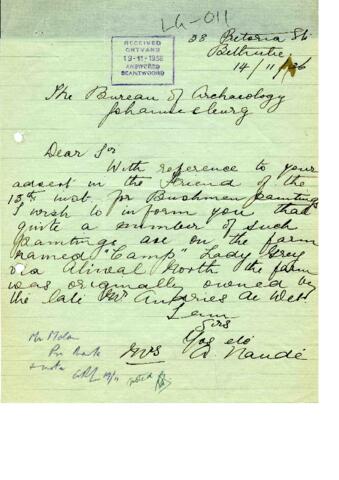 LG-011
38 Pretoria St.
Bethulie,
14/11/56
RECEIVED
ONTVANG
19-11-1956
ANSWERED
BEANTWOORD
The Bureau of Archaeology
Johannesburg
Dear Sir
With reference to your
advert in the Friend of the
13th inst. for Bushmen paintings
I wish to inform you that
quite a number of such
paintings are on the farm
named "Camp" Lady Grey
via Aliwal North the farm
was originally owned by
the late Mr Andries de Wett
I am
Sirs
Yos etc
Mrs D. Naudé
Mr Molon
noted